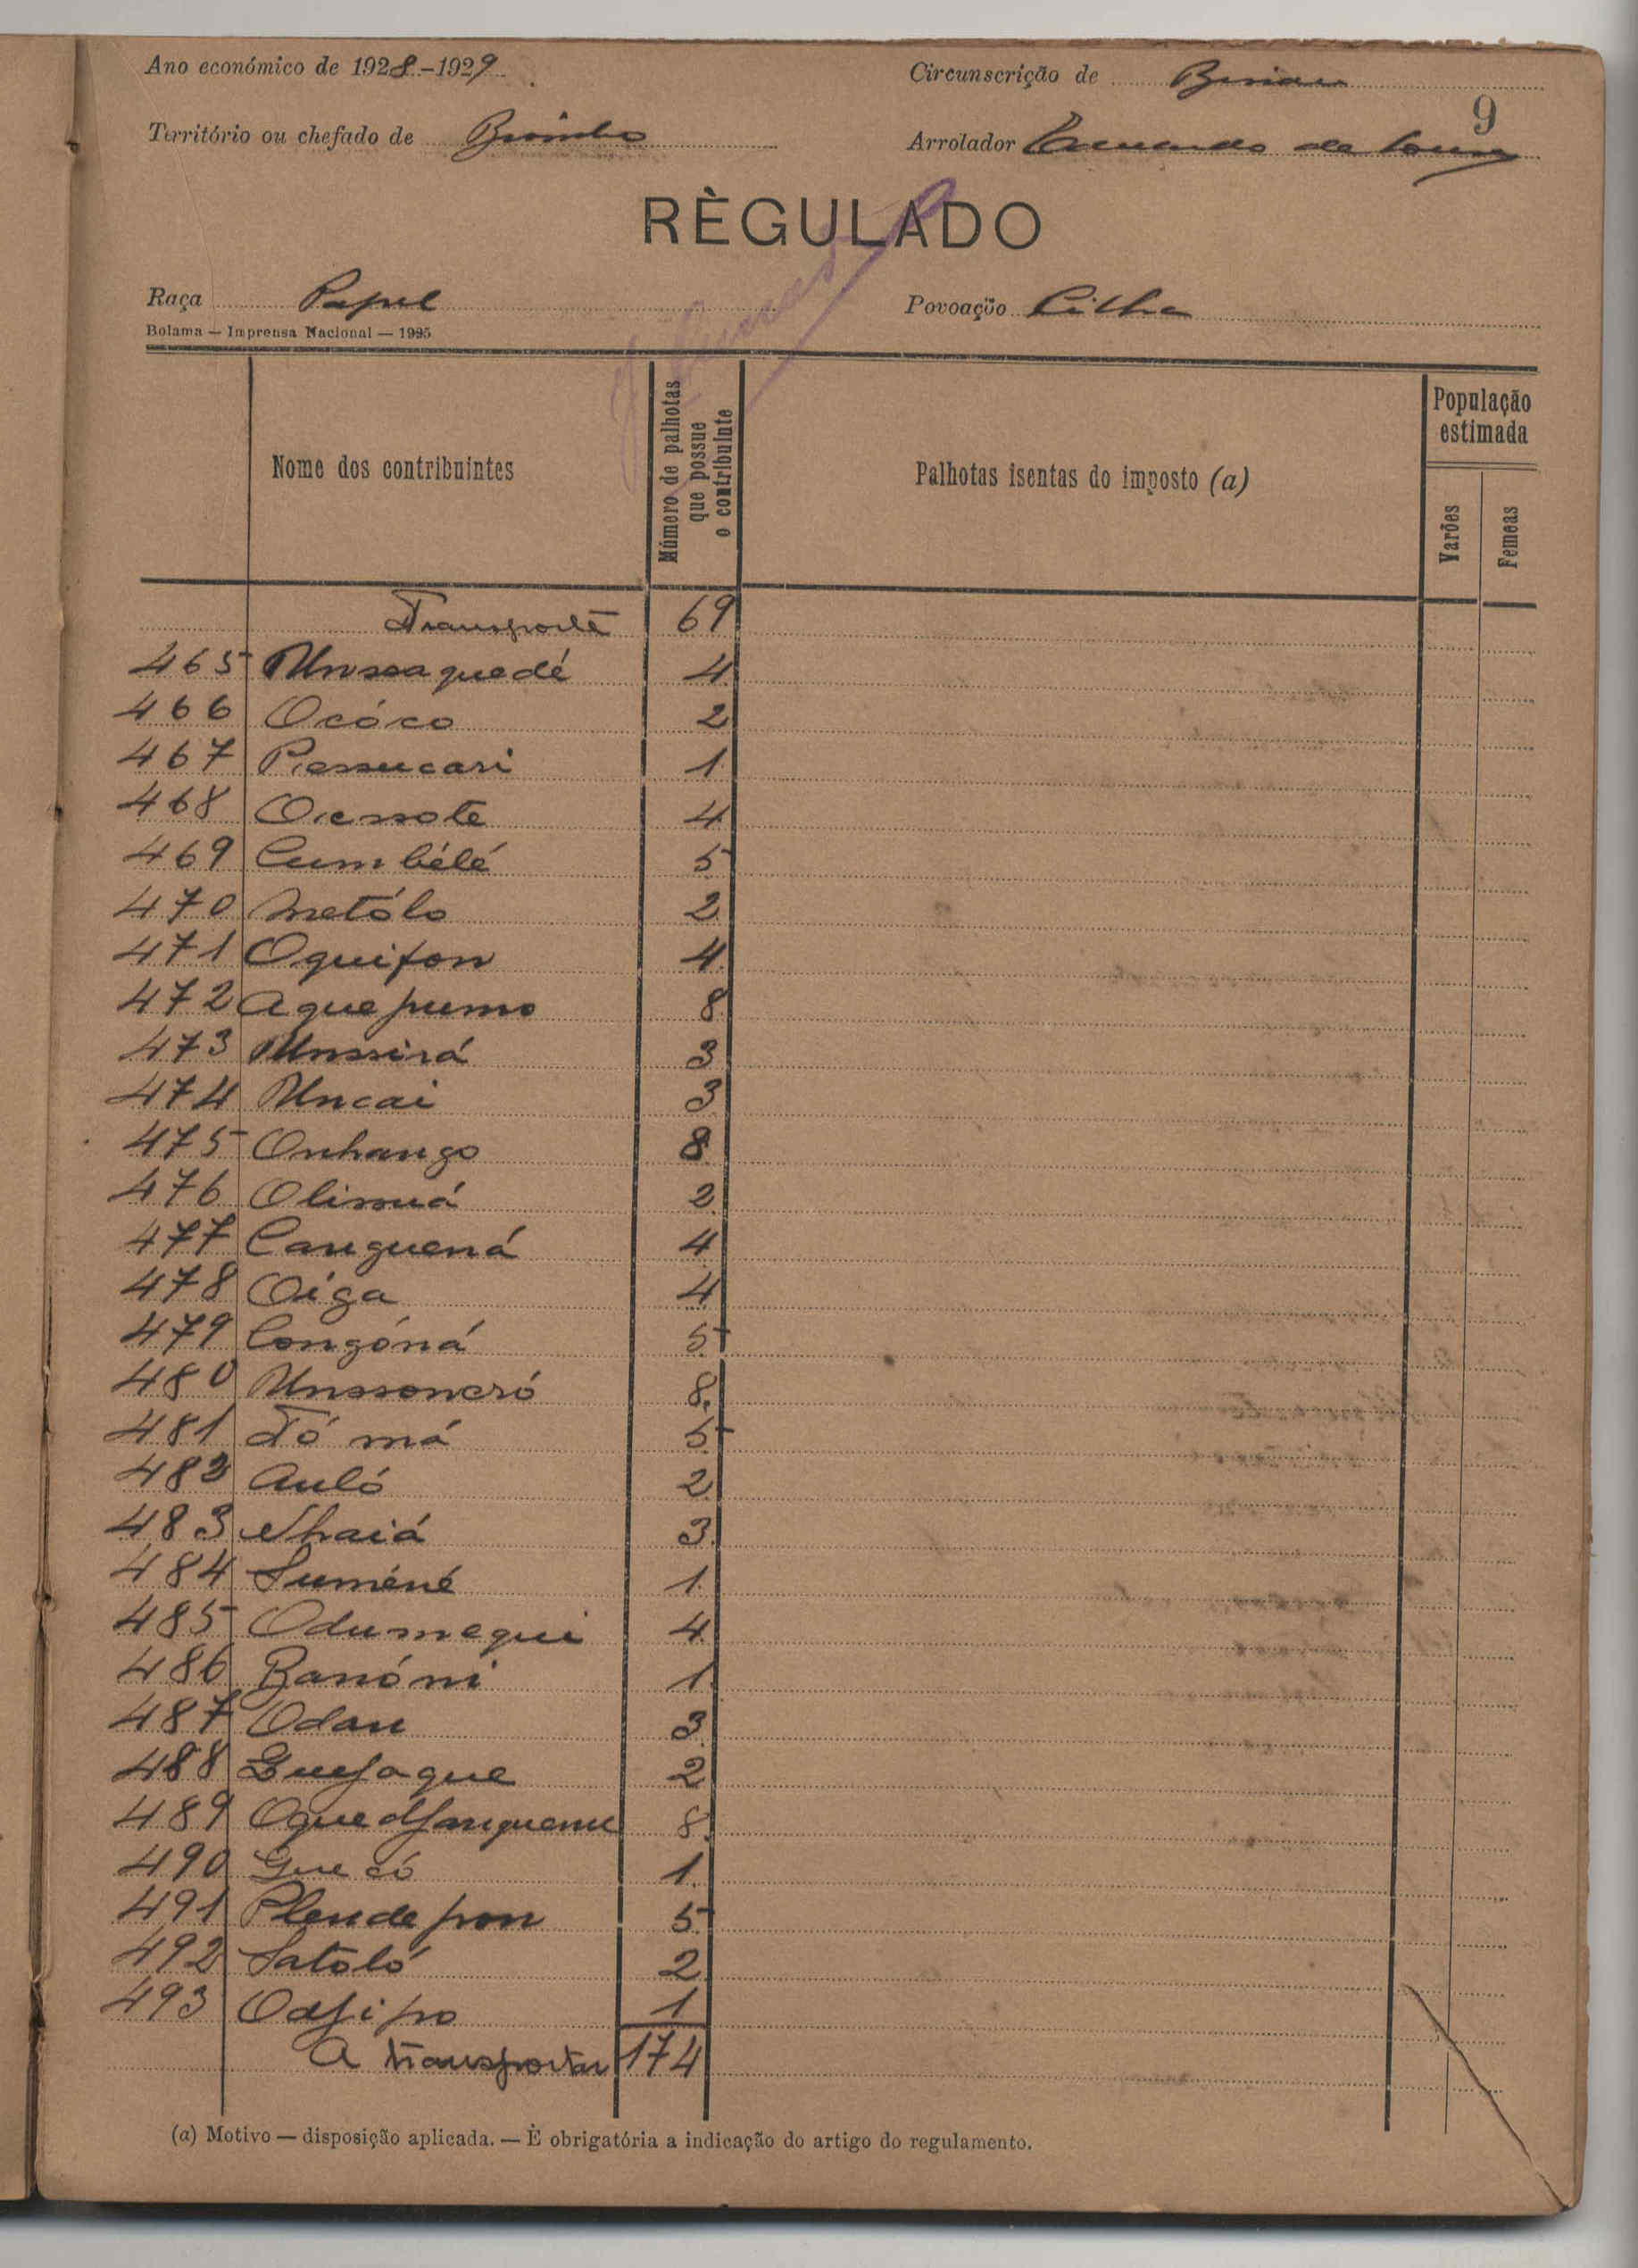 Ano económico de 1928-1929
Circunscrição de Bissau
9
Território ou chefado de
Arrolador de
RÈGULADO
Raça Papel
Povoação
Bolama — Imprensa Nacional — 1925
Nome dos contribuintes
Número de palhotas que possue o contribuinte
Palhotas isentas do imposto (a)
População estimada
Varões
Femeas
Transporte 69
465 Unssaquedé 4
466 Ocóco 2
467 Pessucari 1
468 4
469 Cumbélé 5
470 Metólo 2
471 Oquifon 4
472 Aquepumo 8
473 Unssirá 3
474 Uncai 3
475 Onhango 8
476 2
477 Canguená 4
478 Oiga 4
479 Congóná 5
480 Unssoncró 8
481 Tó má 5
482 Auló 2
483 Nhaiá 3
484 Suméné 1
485 Odumequi 4
486 Banóni 1
487 Odan 3
488 2
489 8
490 Gue có 1
491 Plende pon 5
492 Satoló 2
493 1
A transportar 174
(a) Motivo — disposição aplicada. — È obrigatória a indicação do artigo do regulamento.